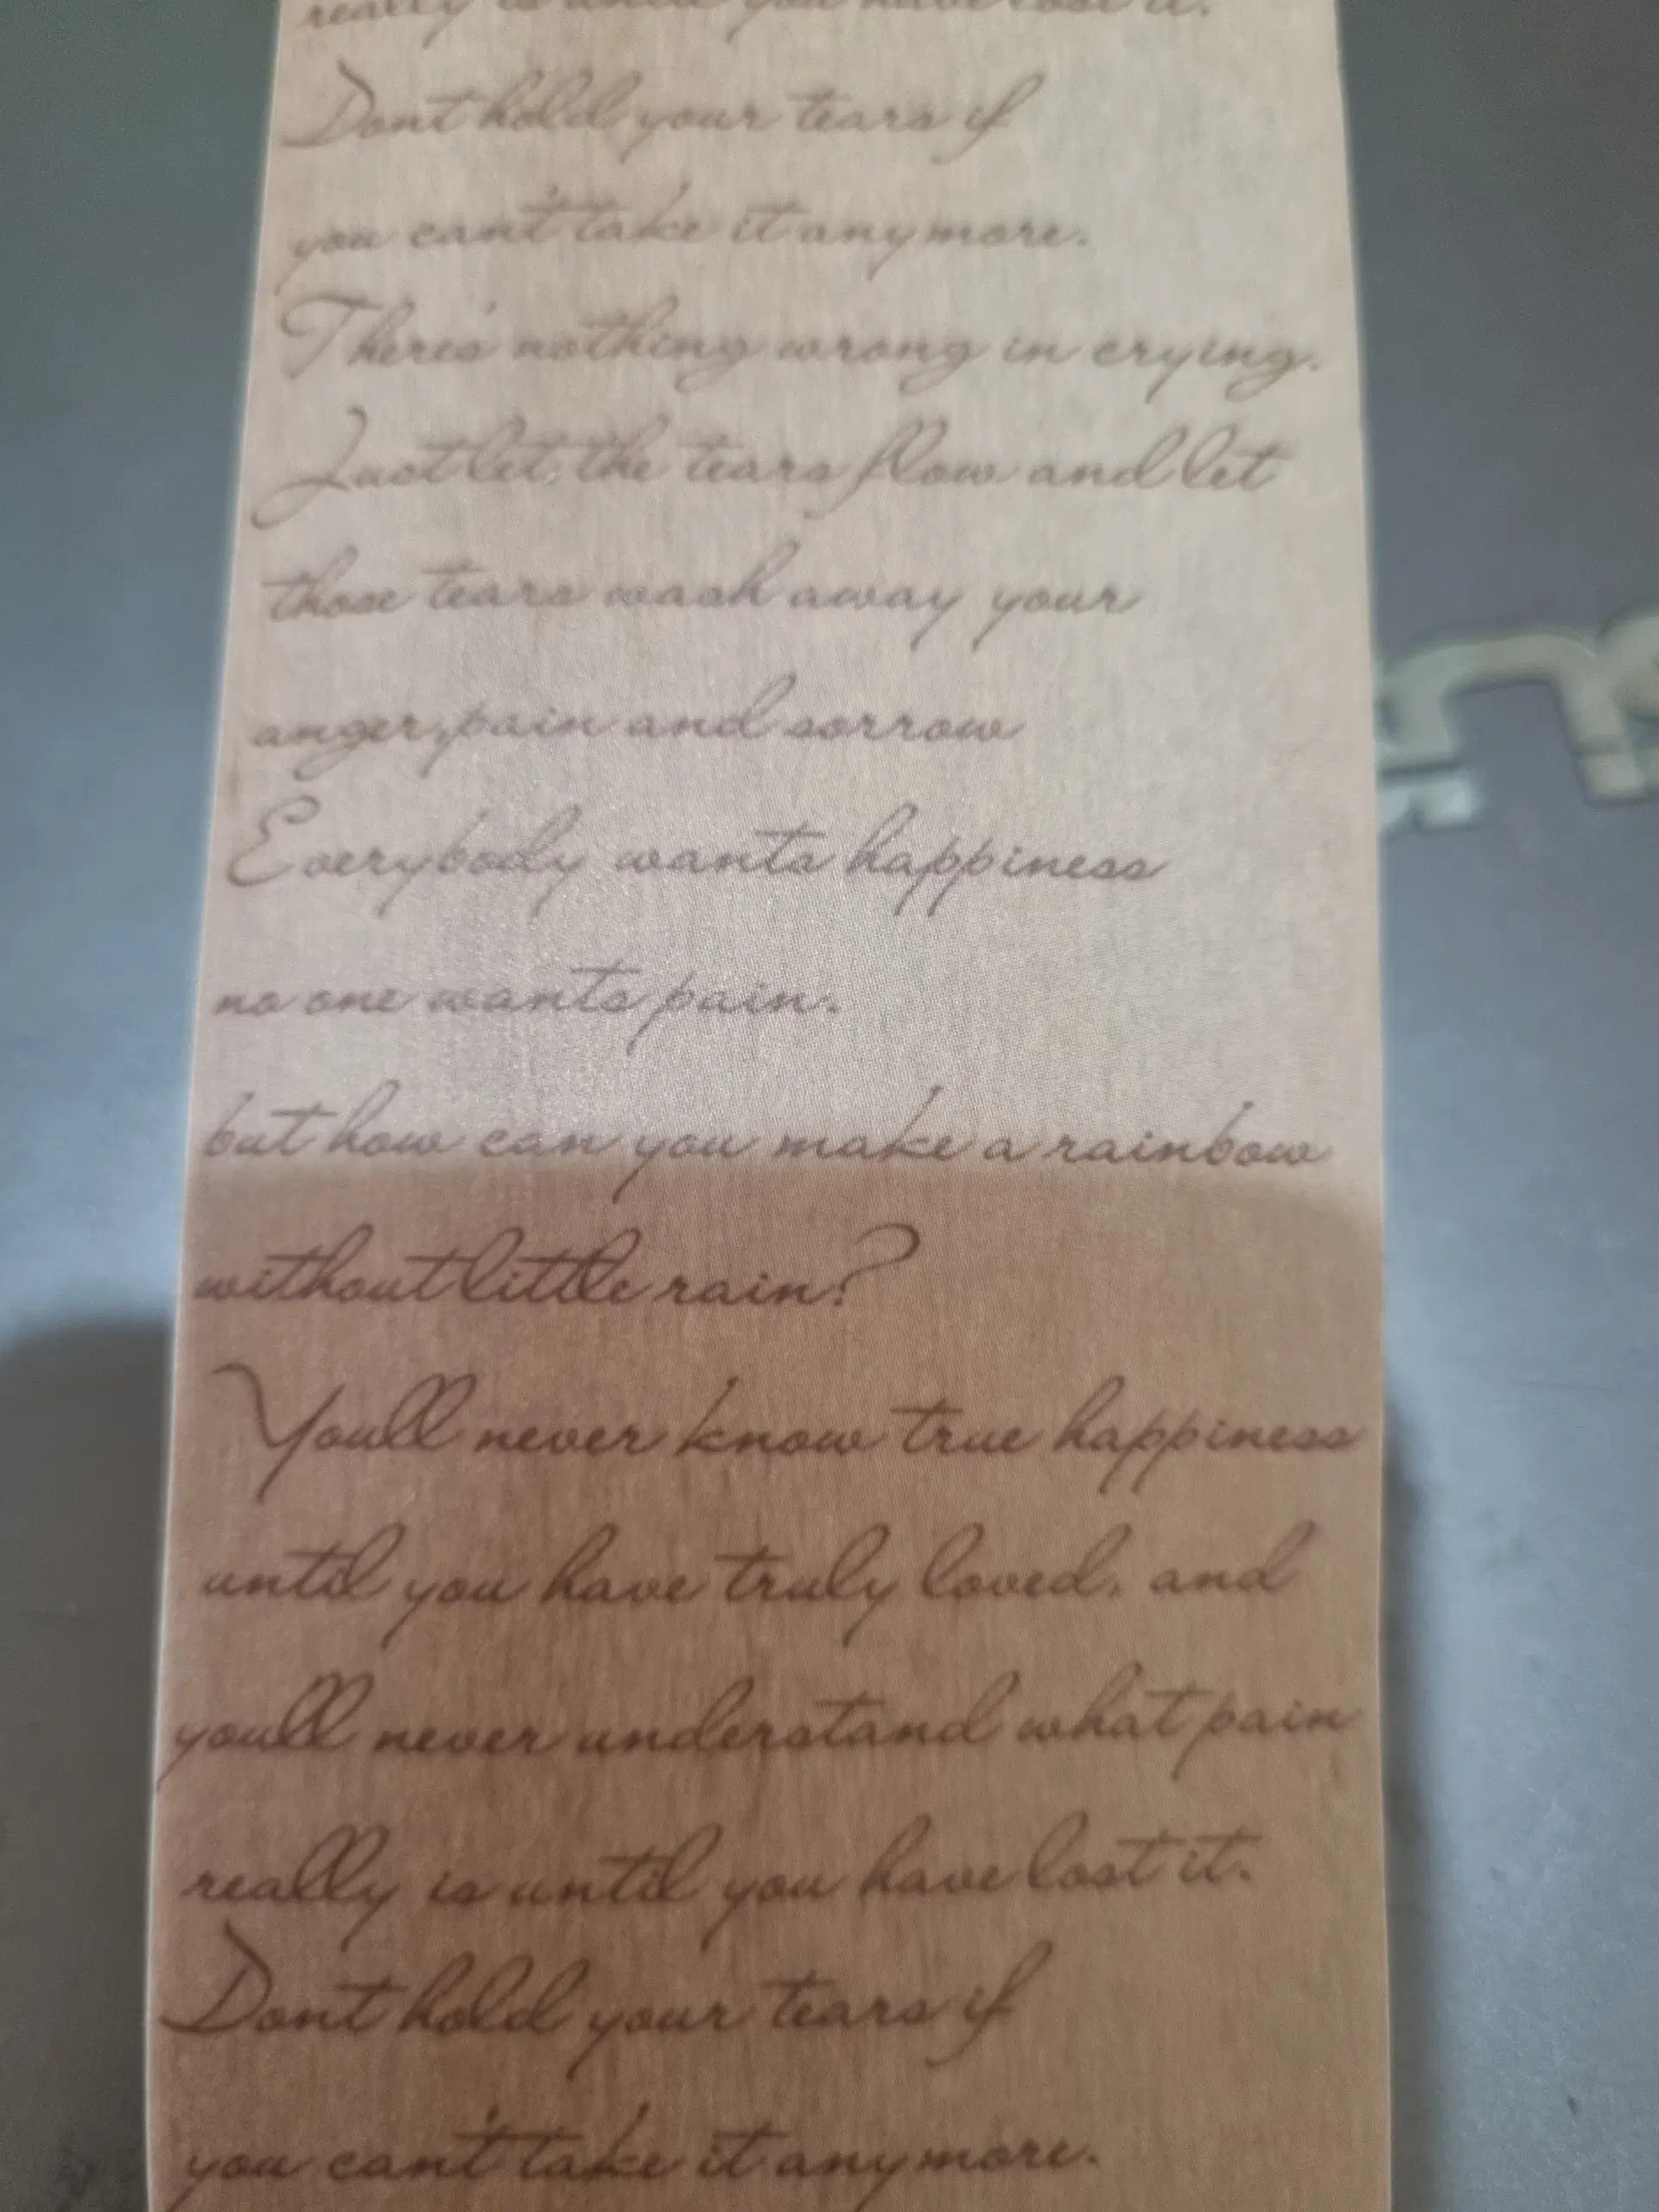 really is until you have lost it.
Dont hold your tears if
you can't take it anymore.
There's nothing wrong in crying.
Just let, the tears flow and let
those tears wash away your
anger,pain and sorrow
Everybody wants happiness
no one wants pain.
but how can you make a rainbow
without little rain?
Youll never know true happiness
until you have truly loved, and
youll never understand what pain
really is until you have lost it.
Dont hold your tears if
you can't take it anymore.